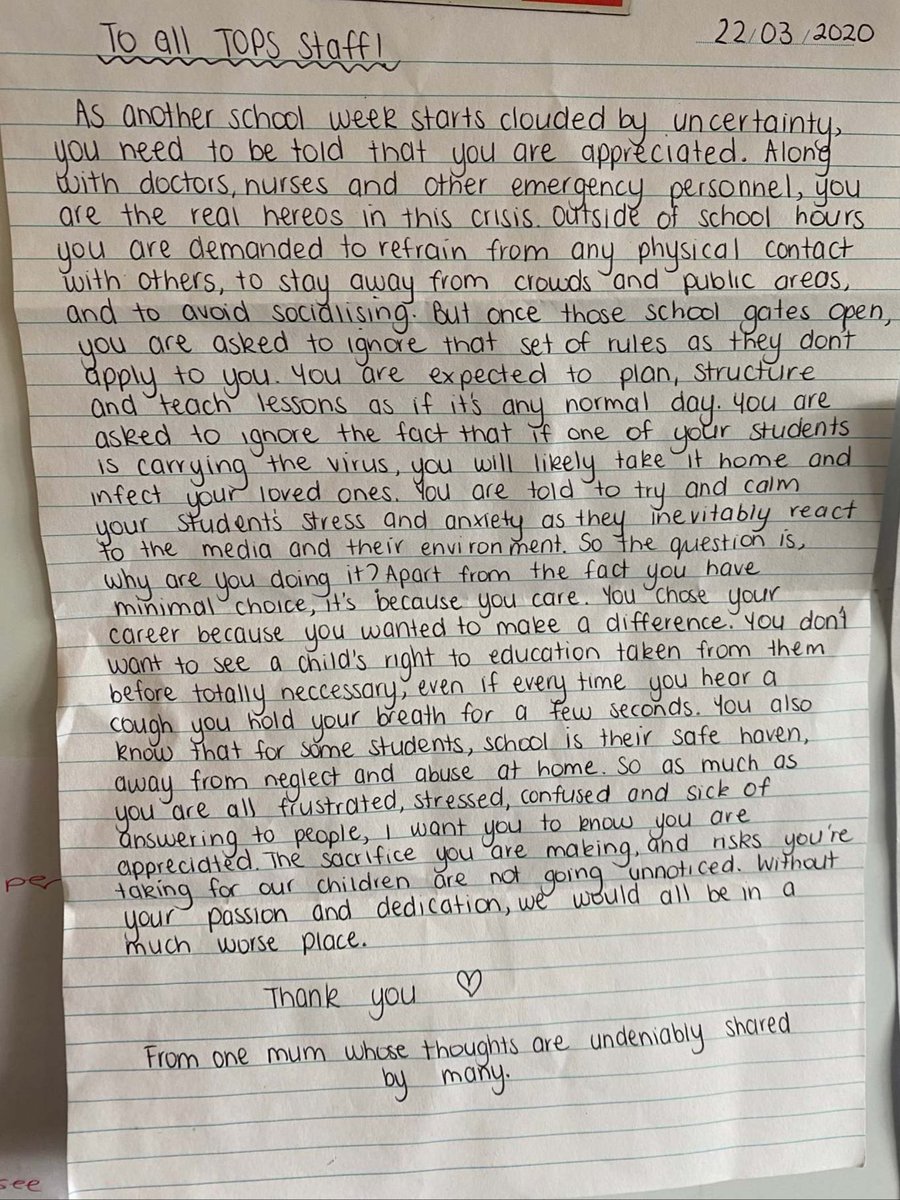 To all TOPS Staff!
22/03/2020
As another school week starts clouded by uncertainty,
you need to be told that you are appreciated. Along
with doctors, nurses and other emergency personnel, you
are the real hereos in this crisis. Outside of school hours
you are demanded to refrain from any physical contact
with others, to stay away from crowds and public areas,
and to avoid socialising. But once those school gates open,
you are asked to ignore that set of rules as they don't
apply to you. You are expected to plan, structure
and teach lessons as if it's any normal day. You are
asked to ignore the fact that if one of your students
is carrying the virus, you will likely take it home and
infect your loved ones. You are told to try and calm
your student's stress and anxiety as they inevitably react
to the media and their environment. So the question is,
why are you doing it? Apart from the fact you have
minimal choice, it's because you care. You chose your
career because you wanted to make a difference. You don't
want to see a child's right to education taken from them
before totally neccessary, even if every time you hear a
cough you hold your breath for a few seconds. You also
know that for some students, school is their safe haven,
away from neglect and abuse at home. So as much as
you are all frustrated, stressed, confused and sick of
answering to people, I want you to know you are
appreciated. The sacrifice you are making, and risks you're
taking for our children are not going unnoticed. Without
your passion and dedication, we would all be in a
much worse place.
Thank you ♡
From one mum whose thoughts are undeniably shared
by many.
pe
see